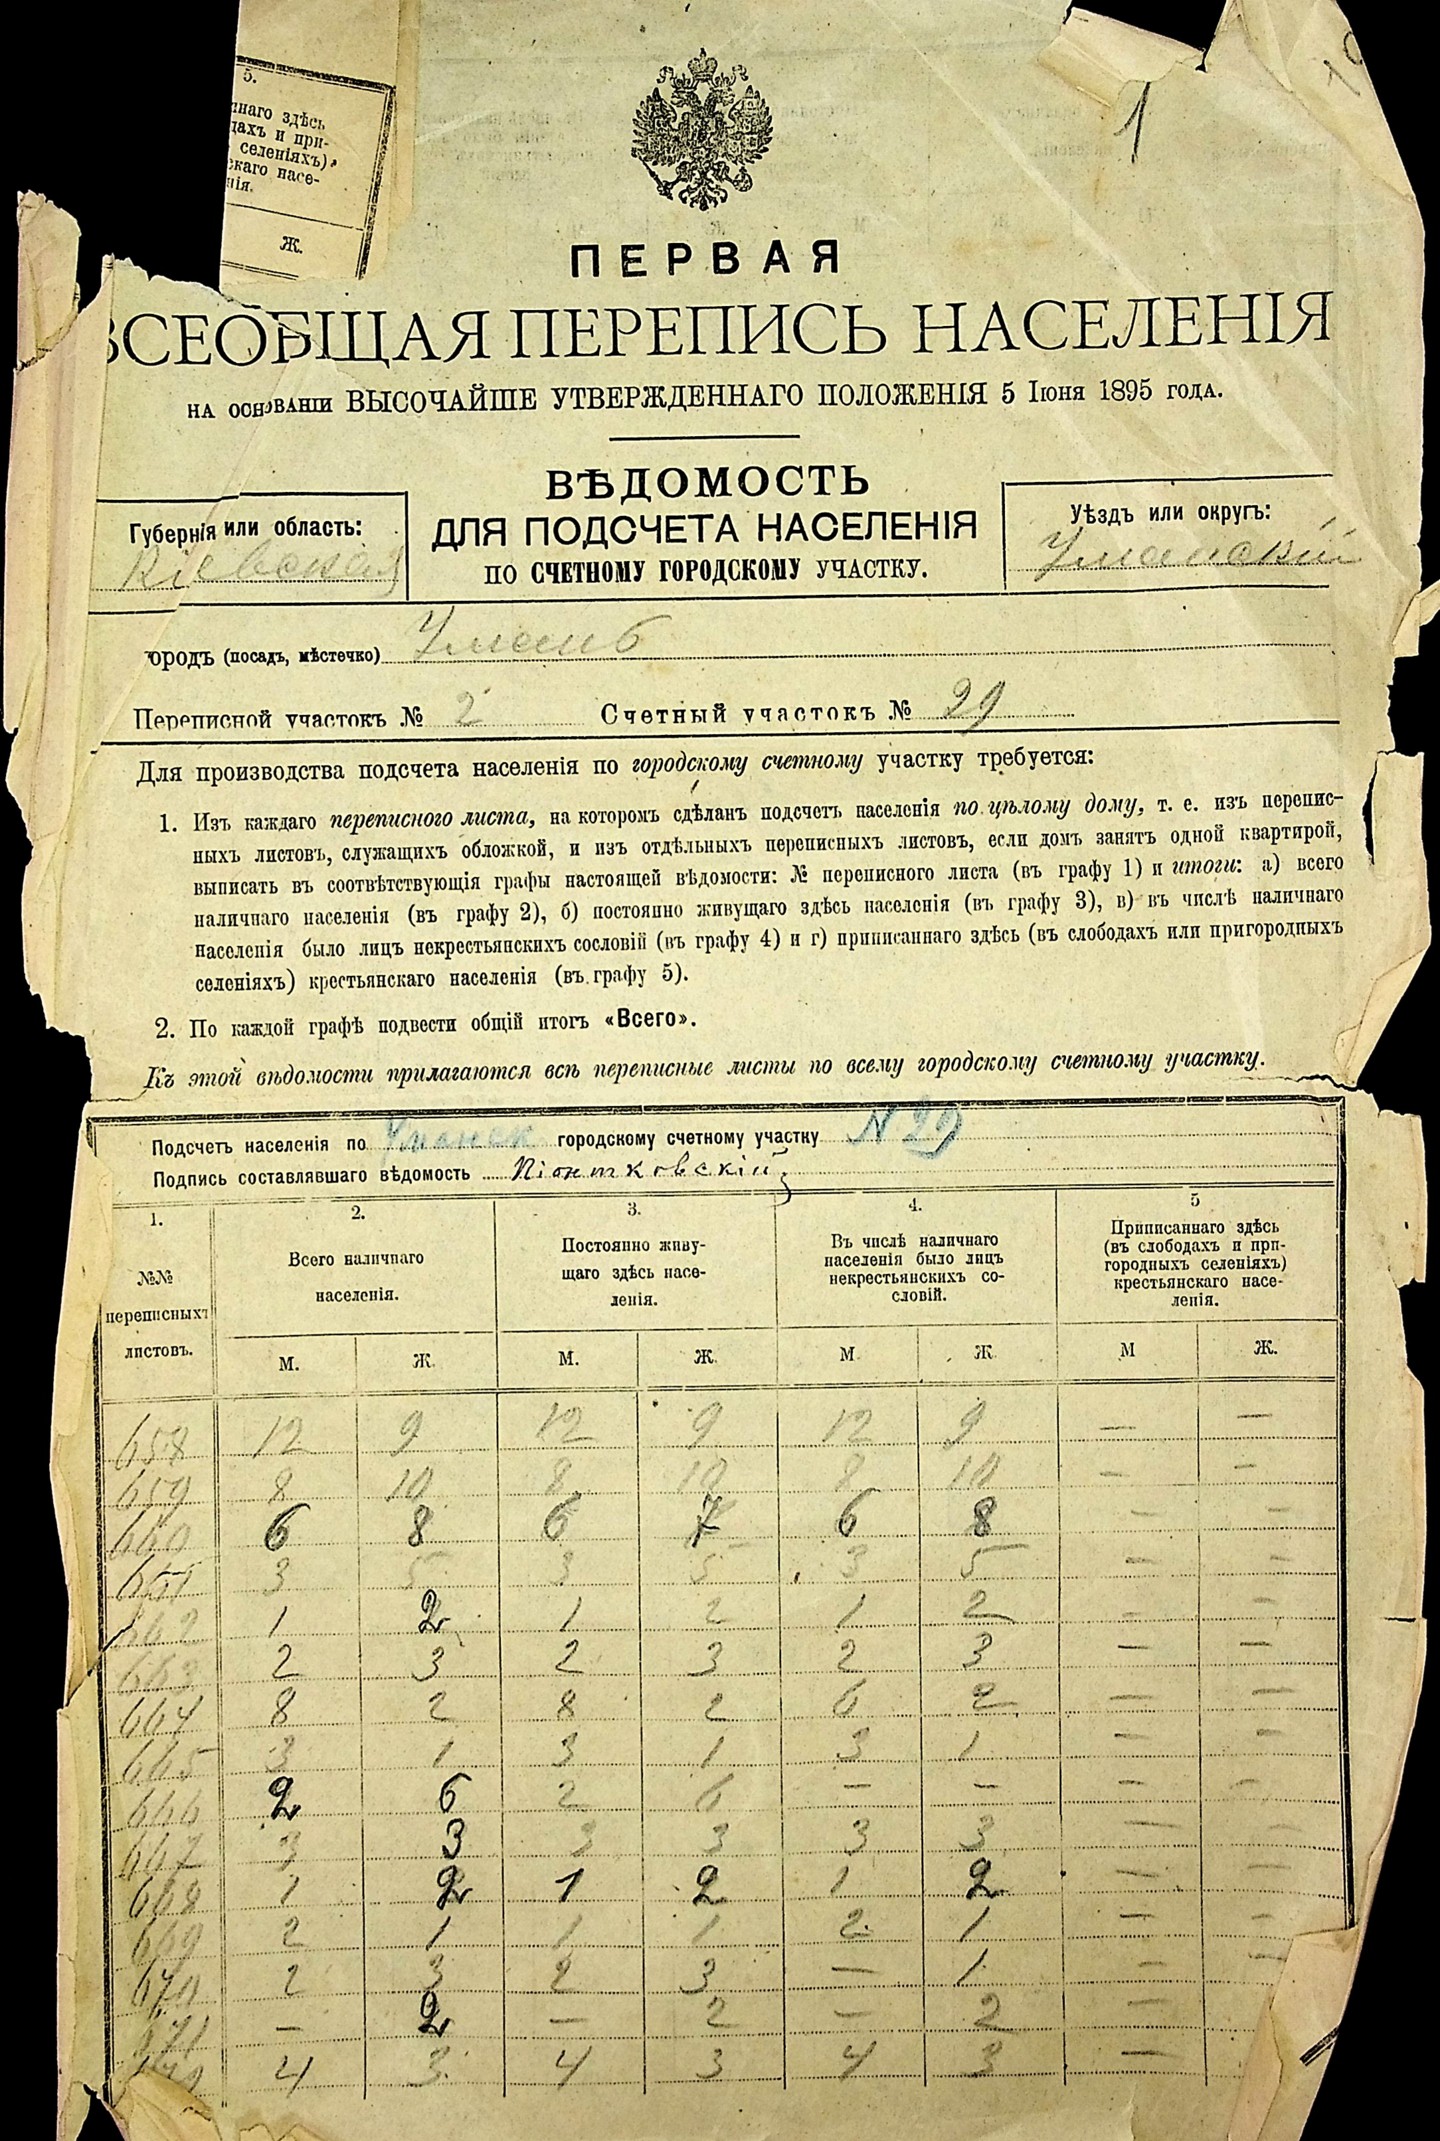 5.
ннаго здѣсь
дахъ и при-
селеніяхъ)
скаго насе-
нія.
Ж.
1
ПЕРВАЯ
ВСЕОБЩАЯ ПЕРЕПИСЬ НАСЕЛЕНІЯ
НА ОСНОВАНІИ ВЫСОЧАЙШЕ УТВЕРЖДЕННАГО ПОЛОЖЕНІЯ 5 Іюня 1895 года.
ВѢДОМОСТЬ
ДЛЯ ПОДСЧЕТА НАСЕЛЕНІЯ
ПО СЧЕТНОМУ ГОРОДСКОМУ УЧАСТКУ.
Губернія или область:
Кіевская
Уѣздъ или округъ:
Уманскій
ородъ (посадъ, мѣстечко) Умань
Переписной участокъ № 2 Счетный участокъ № 29
Для производства подсчета населенія по городскому счетному участку требуется:
1. Изъ каждаго переписного листа, на которомъ сдѣланъ подсчетъ населенія по цѣлому дому, т. е. изъ перепис-
ныхъ листовъ, служащихъ обложкой, и изъ отдѣльныхъ переписныхъ листовъ, если домъ занятъ одной квартирой,
выписать въ соотвѣтствующія графы настоящей вѣдомости: № переписного листа (въ графу 1) и итоги: а) всего
наличнаго населенія (въ графу 2), б) постоянно живущаго здѣсь населенія (въ графу 3), в) въ числѣ наличнаго
населенія было лицъ некрестьянскихъ сословій (въ графу 4) и г) приписаннаго здѣсь (въ слободахъ или пригородныхъ
селеніяхъ) крестьянскаго населенія (въ графу 5).
2. По каждой графѣ подвести общій итогъ «Всего».
Къ этой вѣдомости прилагаются всѣ переписные листы по всему городскому счетному участку.
Подсчетъ населенія по Уманск городскому счетному участку N 29
Подпись составлявшаго вѣдомость Піонтковскій
1. №№ переписныхъ листовъ.
2. Всего наличнаго населенія.
3. Постоянно живу-щаго здѣсь насе-ленія.
4. Въ числѣ наличнаго населенія было лицъ некрестьянскихъ со-словій.
5 Приписаннаго здѣсь (въ слободахъ и при-городныхъ селеніяхъ) крестьянскаго насе-ленія.
М. Ж. М. Ж. М Ж М Ж.
658 12 9 12 9 12 9 — —
659 8 10 8 10 8 10 — —
660 6 8 6 7 6 8 — —
661 3 5 3 5 3 5 — —
662 1 2 1 2 1 2 — —
663 2 3 2 3 2 3 — —
664 8 2 8 2 6 2 — —
665 3 1 3 1 3 1 — —
666 2 6 2 6 — — — —
667 3 3 3 3 3 3 — —
668 1 2 1 2 1 2 — —
669 2 1 1 1 2 1 — —
670 2 3 2 3 — 1 — —
671 — 2 — 2 — 2 —
4 3 4 3 4 3 —